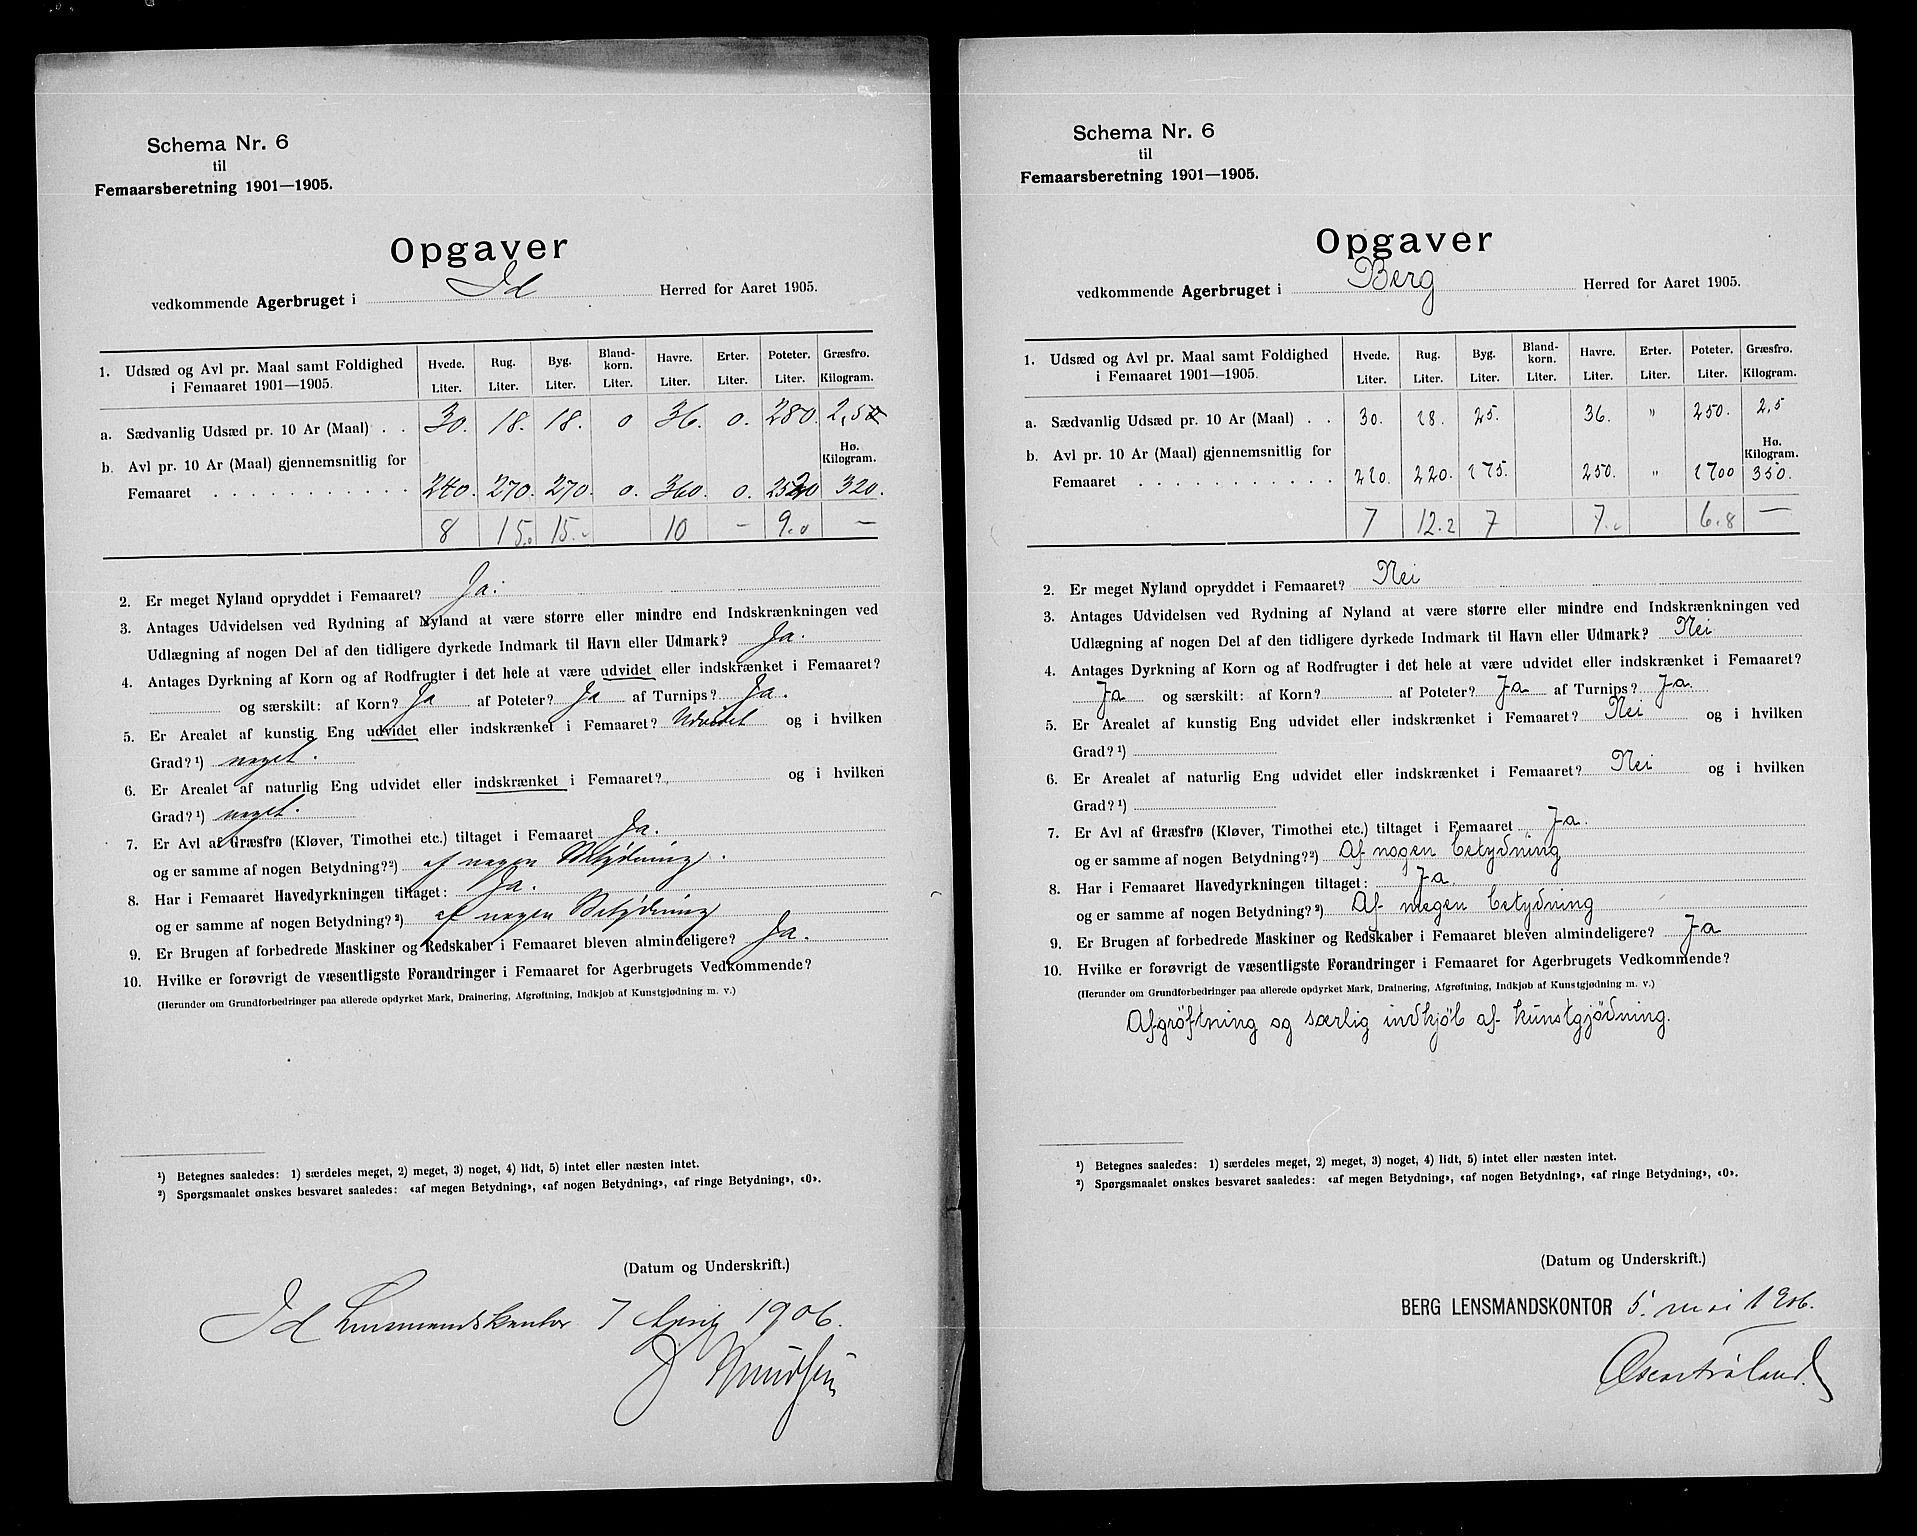 Schema Nr. 6
til
Femaarsberetning 1901—1905.
Opgaver
vedkommende Agerbruget i Id Herred for Aaret 1905.
1. Udsæd og Avl pr. Maal samt Foldighed i Femaaret 1901—1905. Hvede. Liter. Rug. Liter. Byg. Liter. Bland-korn. Liter. Havre. Liter. Erter. Liter. Poteter. Liter. Græsfrø. Kilogram.
a. Sædvanlig Udsæd pr. 10 Ar (Maal) . . 30. 18. 18. 0 36. 0. 280. 2,50
Hø. Kilogram.
b. Avl pr. 10 Ar (Maal) gjennemsnitlig for
Femaaret . . . . . . . . . . . 240. 270. 270. 0. 360. 0. 2520 320.
8 15.0 15.- 10 — 9.0 —
2. Er meget Nyland opryddet i Femaaret? Ja.
3. Antages Udvidelsen ved Rydning af Nyland at være større eller mindre end Indskrænkningen ved
Udlægning af nogen Del af den tidligere dyrkede Indmark til Havn eller Udmark? Ja.
4. Antages Dyrkning af Korn og af Rodfrugter i det hele at være udvidet eller indskrænket i Femaaret?
og særskilt: af Korn? Ja af Poteter? Ja af Turnips? Ja.
5. Er Arealet af kunstig Eng udvidet eller indskrænket i Femaaret? Udvidet og i hvilken
Grad?¹) noget.
6. Er Arealet af naturlig Eng udvidet eller indskrænket i Femaaret? og i hvilken
Grad?¹) noget.
7. Er Avl af Græsfrø (Kløver, Timothei etc.) tiltaget i Femaaret Ja.
og er samme af nogen Betydning?²) af nogen Betydning.
8. Har i Femaaret Havedyrkningen tiltaget: Ja.
og er samme af nogen Betydning?²) af nogen Betydning
9. Er Brugen af forbedrede Maskiner og Redskaber i Femaaret bleven almindeligere? Ja.
10. Hvilke er forøvrigt de væsentligste Forandringer i Femaaret for Agerbrugets Vedkommende?
(Herunder om Grundforbedringer paa allerede opdyrket Mark, Drainering, Afgrøftning, Indkjøb af Kunstgjødning m. v.)
¹) Betegnes saaledes: 1) særdeles meget, 2) meget, 3) noget, 4) lidt, 5) intet eller næsten intet.
²) Spørgsmaalet ønskes besvaret saaledes: «af megen Betydning», «af nogen Betydning», «af ringe Betydning», «0».
(Datum og Underskrift.)
Id Lensmandskontor 7 April 1906.
J Knudsen
Schema Nr. 6
til
Femaarsberetning 1901—1905.
Opgaver
vedkommende Agerbruget i Berg Herred for Aaret 1905.
1. Udsæd og Avl pr. Maal samt Foldighed i Femaaret 1901—1905. Hvede. Liter. Rug. Liter. Byg. Liter. Bland-korn. Liter. Havre. Liter. Erter. Liter. Poteter. Liter. Græsfrø. Kilogram.
a. Sædvanlig Udsæd pr. 10 Ar (Maal) . . 30. 18. 25. 36. " 250. 2,5
Hø. Kilogram.
b. Avl pr. 10 Ar (Maal) gjennemsnitlig for
Femaaret . . . . . . . . . . . 210. 220. 175. 250. " 1700 350.
7 12.2 7 7.- 6.8 —
2. Er meget Nyland opryddet i Femaaret? Nei
3. Antages Udvidelsen ved Rydning af Nyland at være større eller mindre end Indskrænkningen ved
Udlægning af nogen Del af den tidligere dyrkede Indmark til Havn eller Udmark? Nei
4. Antages Dyrkning af Korn og af Rodfrugter i det hele at være udvidet eller indskrænket i Femaaret?
Ja og særskilt: af Korn? af Poteter? Ja af Turnips? Ja.
5. Er Arealet af kunstig Eng udvidet eller indskrænket i Femaaret? Nei og i hvilken
Grad?¹)
6. Er Arealet af naturlig Eng udvidet eller indskrænket i Femaaret? Nei og i hvilken
Grad?¹)
7. Er Avl af Græsfrø (Kløver, Timothei etc.) tiltaget i Femaaret Ja.
og er samme af nogen Betydning?²) Af nogen betydning
8. Har i Femaaret Havedyrkningen tiltaget: Ja.
og er samme af nogen Betydning?²) Af megen betydning
9. Er Brugen af forbedrede Maskiner og Redskaber i Femaaret bleven almindeligere? Ja
10. Hvilke er forøvrigt de væsentligste Forandringer i Femaaret for Agerbrugets Vedkommende?
(Herunder om Grundforbedringer paa allerede opdyrket Mark, Drainering, Afgrøftning, Indkjøb af Kunstgjødning m. v.)
Afgrøftning og særlig indkjøb af kunstgjødning.
¹) Betegnes saaledes: 1) særdeles meget, 2) meget, 3) noget, 4) lidt, 5) intet eller næsten intet.
²) Spørgsmaalet ønskes besvaret saaledes: «af megen Betydning», «af nogen Betydning», «af ringe Betydning», «0».
(Datum og Underskrift.)
BERG LENSMANDSKONTOR 5. mai 1906.